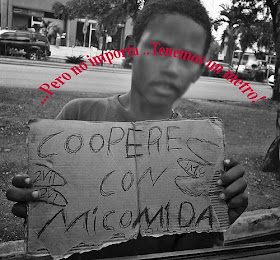 ...Pero no importa ...Tenemos un Metro!
COOPERE
CON
MI COMIDA